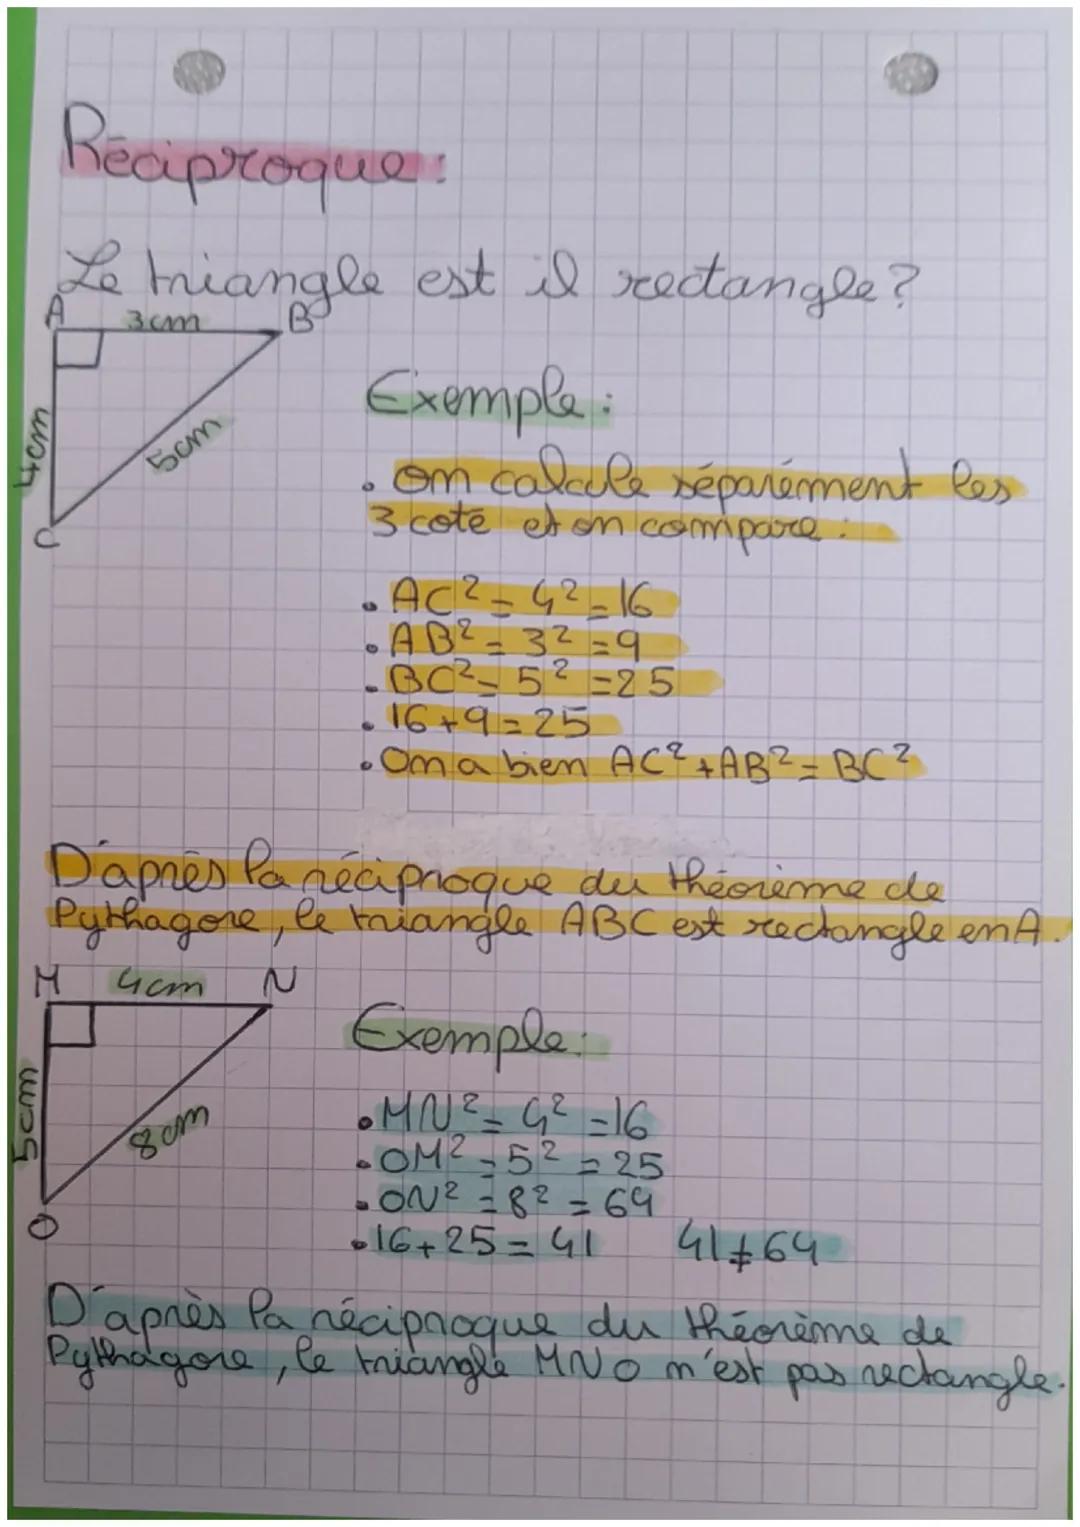 Réciproque:
Le triangle est il rectangle?
A 3cm B
4cm
5cm
C
Exemple:
• on calcule séparément les
3 coté et on compare:
• AC² = 4² = 16
• AB² = 3² = 9
• BC² = 5² = 25
• 16+9=25
• On a bien AC² + AB² = BC²
D'après la réciproque du théorème de
Pythagore, le triangle ABC est rectangle en A.
M 4cm N
5cm
8cm
O
Exemple:
• MN² = 4² = 16
• OM² = 5² = 25
• ON² = 8² = 64
• 16+25=41 41≠64
D'après la réciproque du théorème de
Pythagore, le triangle MNO n'est pas rectangle.